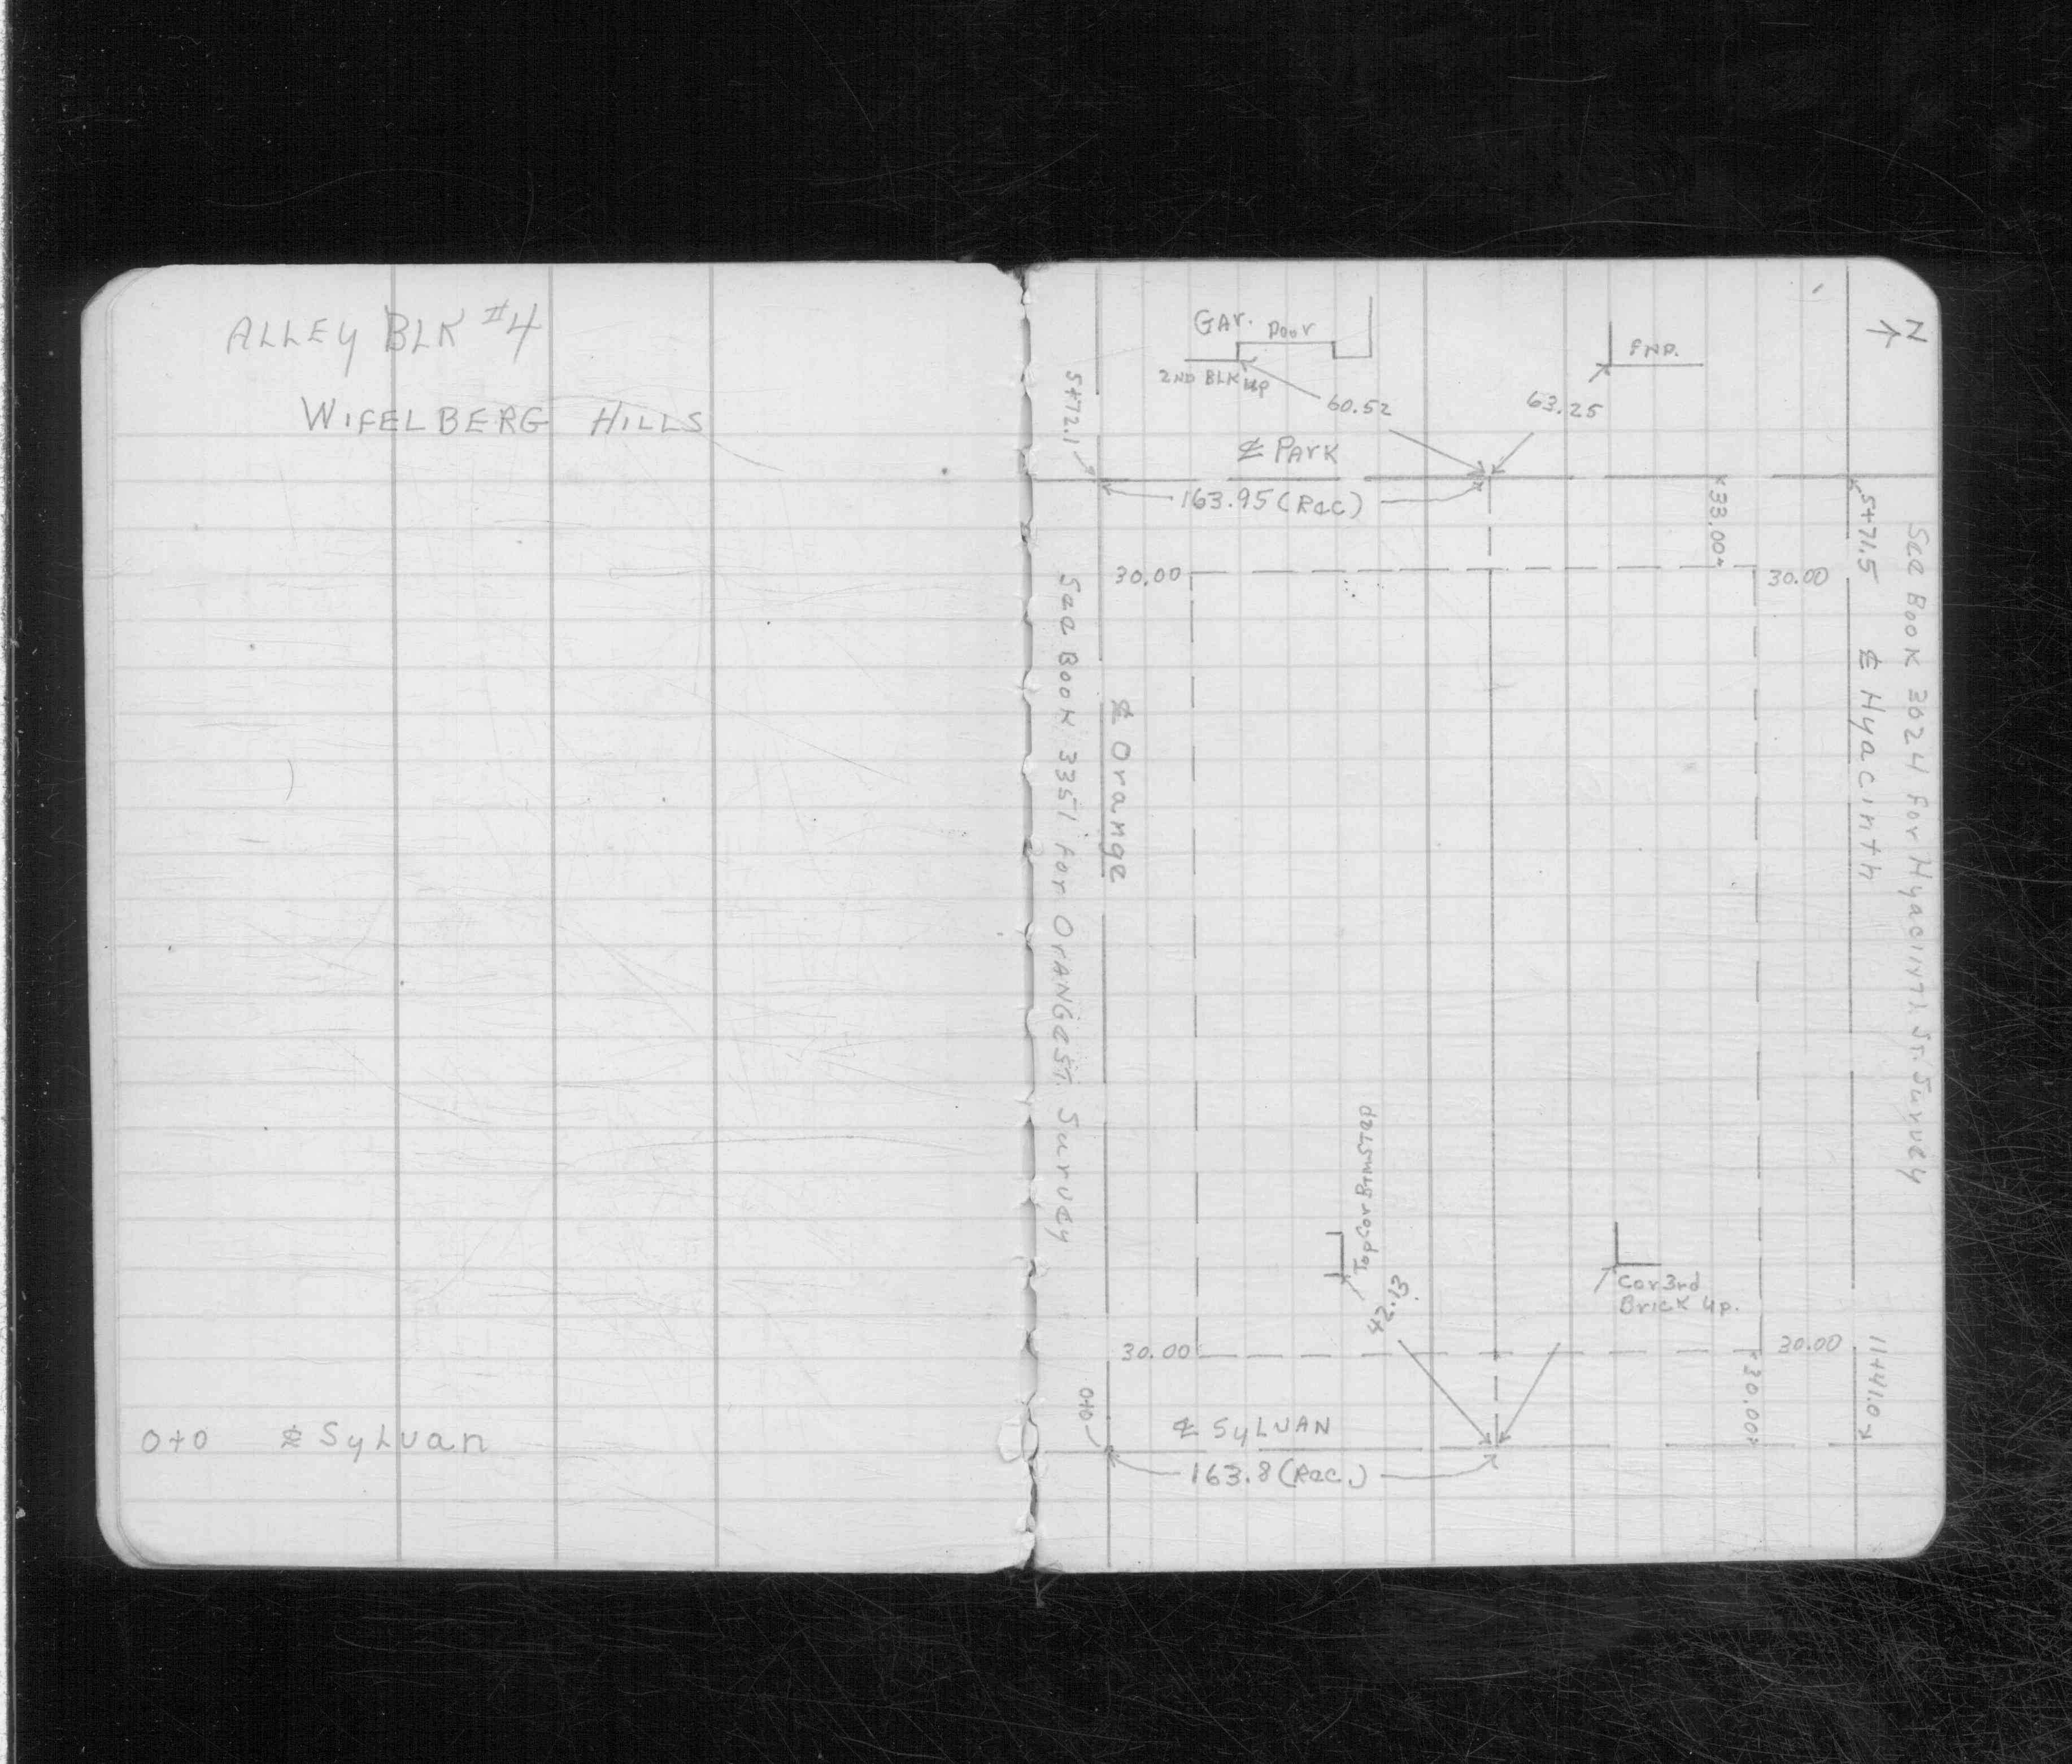 ALLEY BLK #4
WIFELBERG HILLS
0+0 ℄ Sylvan
GAr. Door
2ND BLK up
60.52
FND.
63.25
N
5+72.1
℄ PArK
163.95 (Rec)
33.00
5+71.5
30.00
30.00
℄ Orange
See Book 3351 for OrANGe ST. Survey
℄ Hyacinth
See Book 3024 for Hyacinth St. Survey
Top Cor BTm STep
42.13
Cor 3rd
Brick up.
30.00
30.00
30.00
11+41.0
0+0
℄ SyLVAN
163.8 (Rec.)